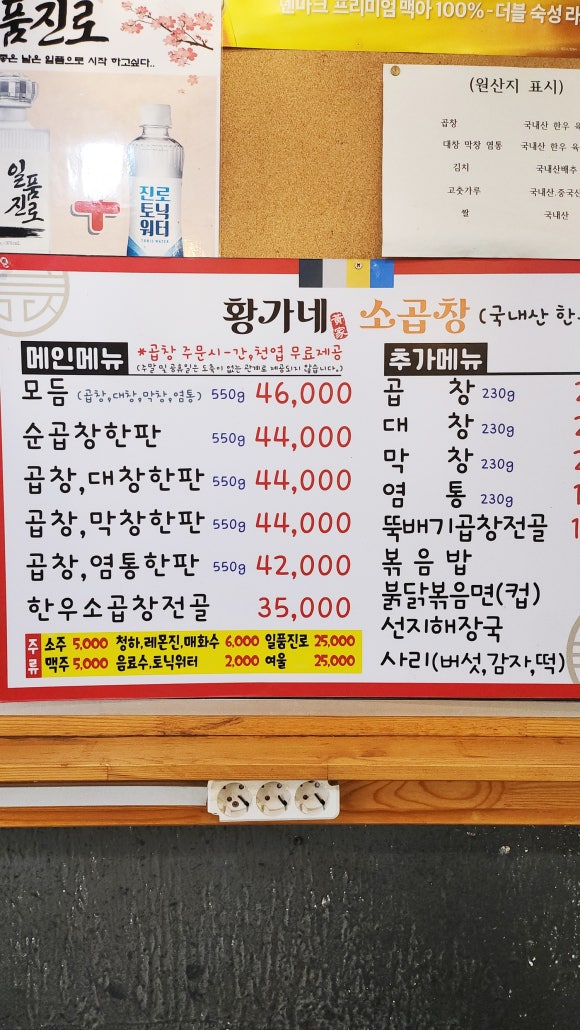 품진로
좋은 날은 일품으로 시작 하고싶다..
일품
진로
진로
토닉
워터
TONIC WATER
프리미엄 맥아 100%-더블 숙성 라
(원산지 표시)
곱창 국내산 한우
대창 막창 염통 국내산 한우
김치 국내산배추
고춧가루 국내산.중국산
쌀 국내산
황가네 黃家 소곱창 (국내산 한
메인메뉴 *곱창 주문시-간,천엽 무료제공
(주말 및 공휴일은 도축이 없는 관계로 제공되지 않습니다.)
모듬 (곱창,대창,막창,염통) 550g 46,000
순곱창한판 550g 44,000
곱창,대창한판 550g 44,000
곱창,막창한판 550g 44,000
곱창,염통한판 550g 42,000
한우소곱창전골 35,000
주류
소주 5,000 청하,레몬진,매화수 6,000 일품진로 25,000
맥주 5,000 음료수,토닉워터 2,000 여울 25,000
추가메뉴
곱 창 230g
대 창 230g
막 창 230g
염 통 230g
뚝배기곱창전골
볶음밥
붉닭볶음면(컵)
선지해장국
사리(버섯,감자,떡)